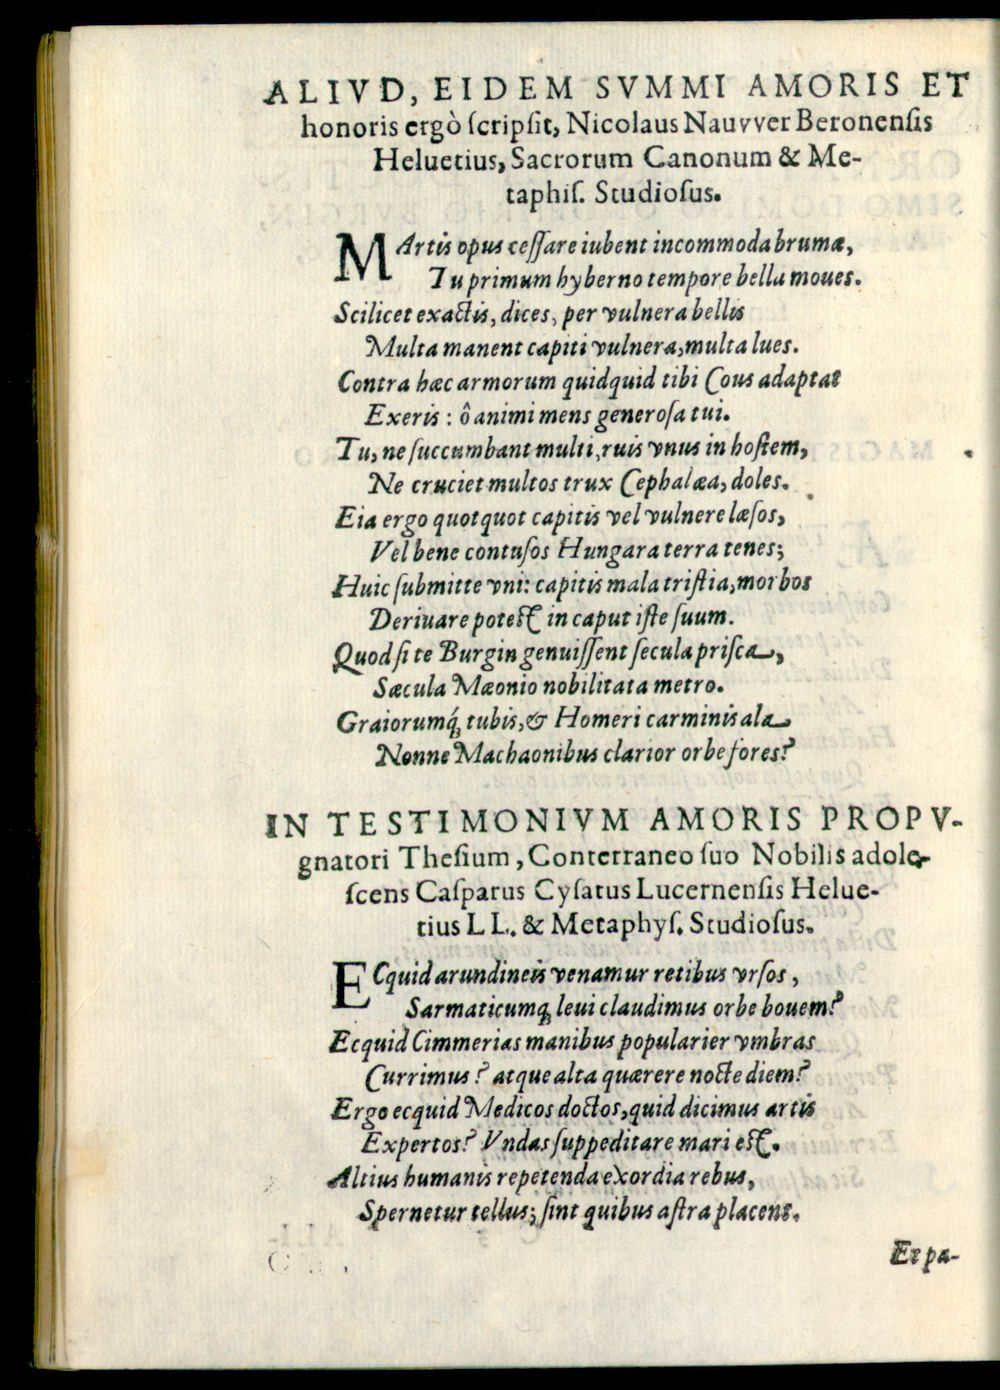 ALIVD, EIDEM SVMMI AMORIS ET
honoris ergò ſcripſit, Nicolaus Nauvver Beronenſis
Heluetius, Sacrorum Canonum & Me-
taphiſ. Studioſus.
MArtis opus ceſſare iubent incommoda brumæ,
Tu primum hyberno tempore bella moues.
Scilicet exactis, dices, per vulnera bellis
Multa manent capiti vulnera, multa lues.
Contra hæc armorum quidquid tibi Cous adaptat
Exeris: ô animi mens generoſa tui.
Tu, ne ſuccumbant multi, ruis vnus in hoſtem,
Ne cruciet multos trux Cephalæa, doles.
Eia ergo quotquot capitis vel vulnere læſos,
Vel bene contuſos Hungara terra tenes;
Huic ſubmitte vni: capitis mala triſtia, morbos
Deriuare poteſt in caput iſte ſuum.
Quod ſi te Burgin genuiſſent ſecula priſca,
Sæcula Mæonio nobilitata metro.
Graiorumq́; tubis, & Homeri carminis ala
Nonne Machaonibus clarior orbe fores?
IN TESTIMONIVM AMORIS PROPV-
gnatori Theſium, Conterraneo ſuo Nobilis adole-
ſcens Caſparus Cyſatus Lucernenſis Helue-
tius LL. & Metaphyſ. Studioſus.
ECquid arundineis venamur retibus vrſos,
Sarmaticumq; leui claudimus orbe bouem?
Ecquid Cimmerias manibus popularier vmbras
Currimus? atque alta quærere nocte diem?
Ergo ecquid Medicos doctos, quid dicimus artis
Expertos? Vndas ſuppeditare mari eſt.
Altius humanis repetenda exordia rebus,
Spernetur tellus; ſint quibus aſtra placent.
Et pa-